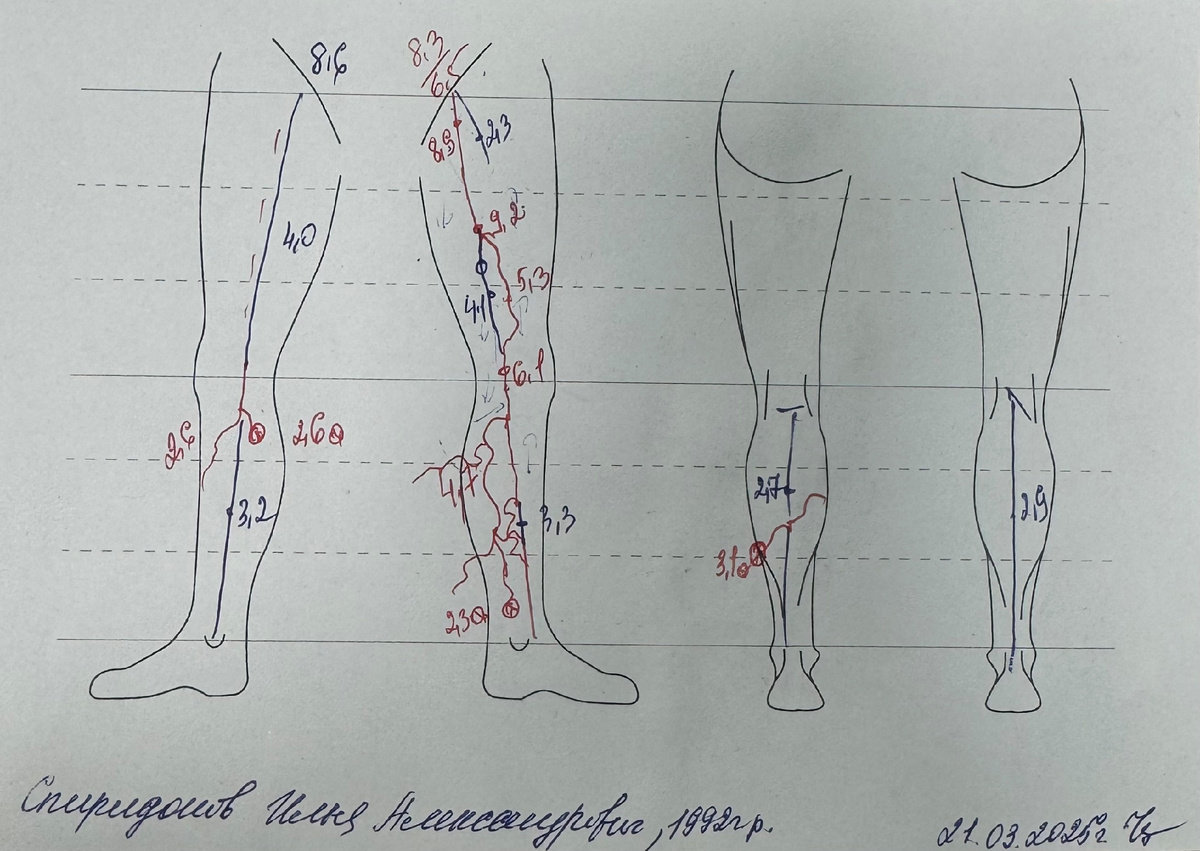 8,6
8,3
6,5
8,5
2,3
9,2
4,0
5,3
4,1
6,1
2,6
2,6
4,7
2,7
3,2
3,3
2,9
3,1
2,3
Спиридонов Илья Александрович, 1992г.р.
21.03.2025г